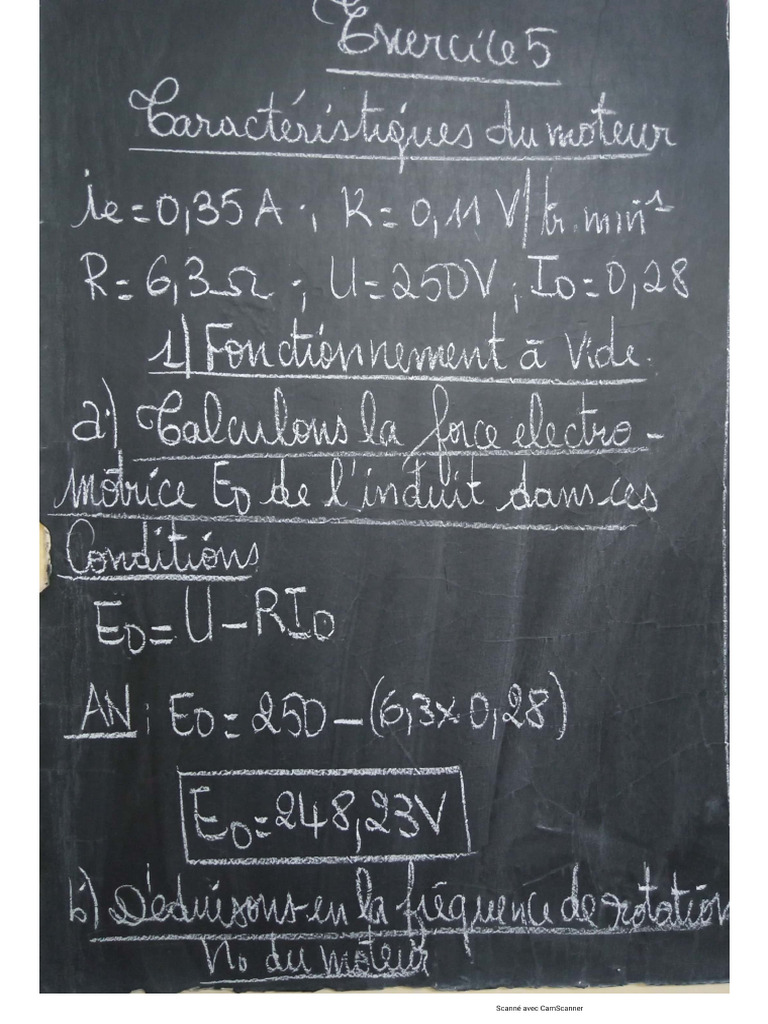 Exercice 5
Caractéristiques du moteur
ie = 0,35 A ; K = 0,11 V/tr.min⁻¹
R = 6,3 Ω ; U = 250V ; I0 = 0,28
1) Fonctionnement à vide.
a) Calculons la force electro-
motrice E0 de l'induit dans ces
Conditions
E0 = U - RI0
AN : E0 = 250 - (6,3 x 0,28)
E0 = 248,23V
b) Déduisons-en la fréquence de rotation
n0 du moteur
Scanné avec CamScanner